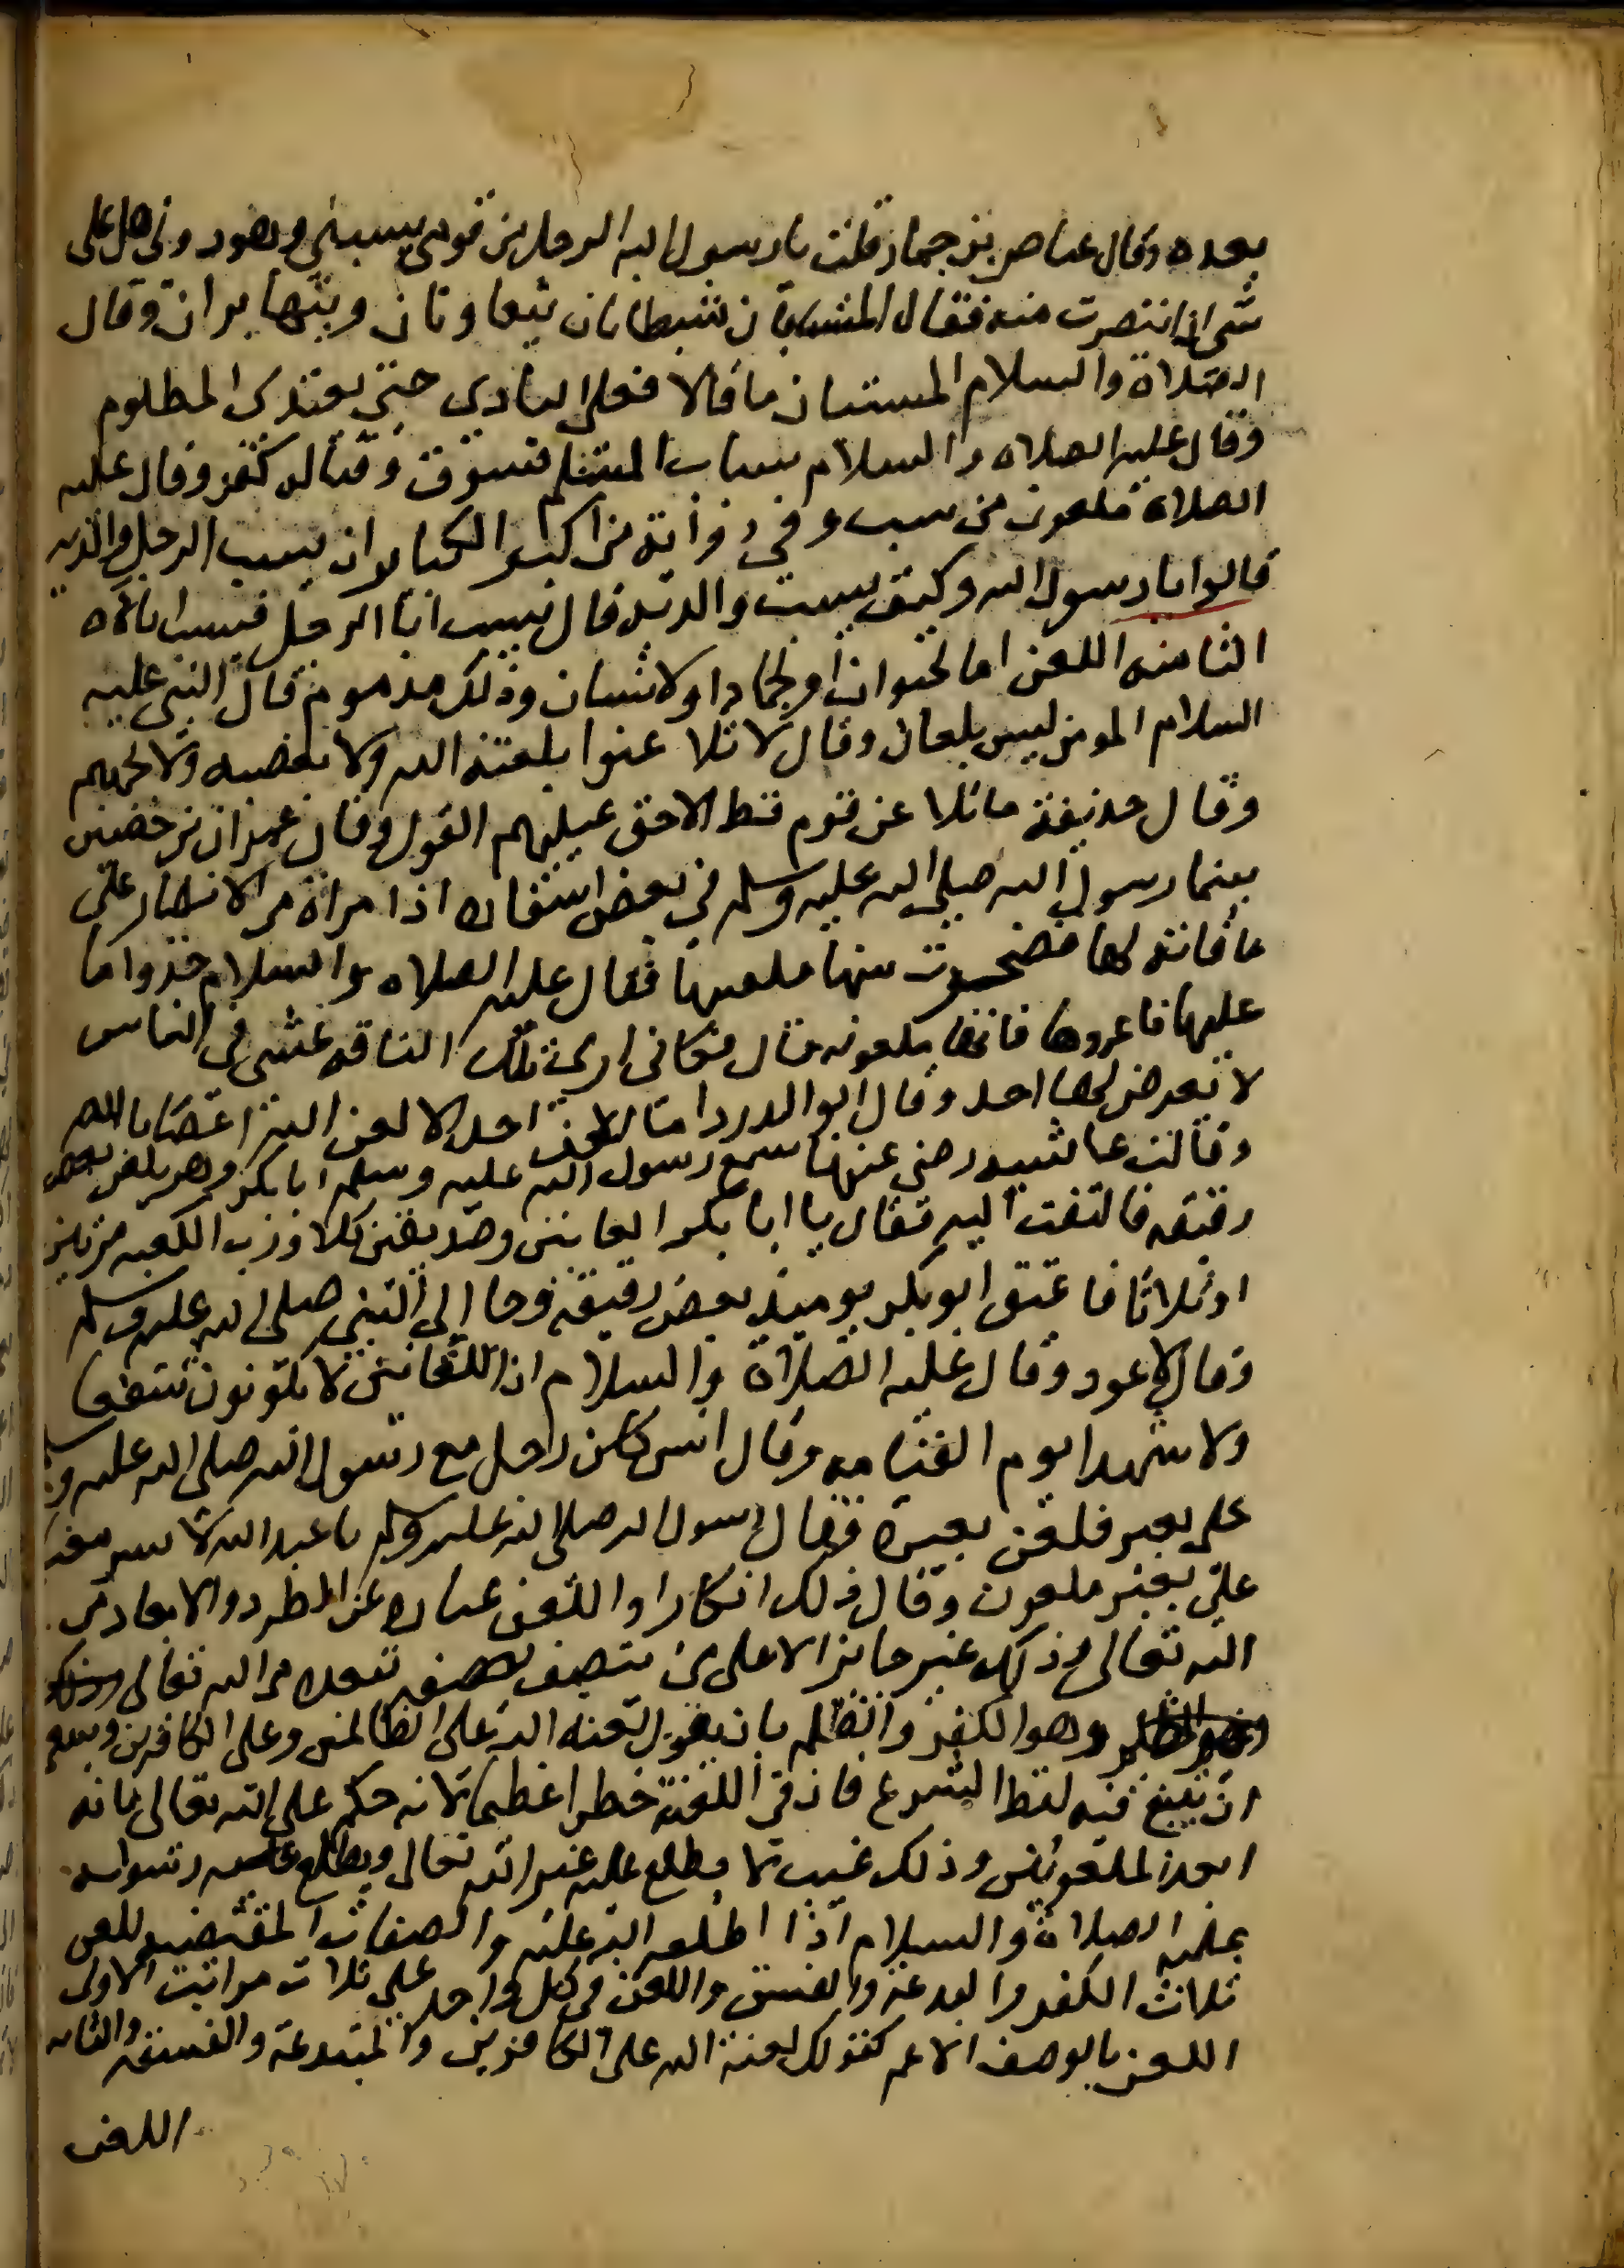 بعده وقال عياض بن حمار قلت يا رسول الله الرجل من قومي يسبني وهو دوني هل علي
شي ان انتصرت منه فقال المتسابان شيطانان يتعاونان ويتهاتران وقال
الصلاة والسلام المستبان ما قالا فعلى البادي حتى يعتدى المظلوم
وقال عليه الصلاه والسلام سباب المسلم فسوق وقتاله كفر وقال عليه
الصلاة ملعون من سب وفي رواية من اكبر الكباير ان يسب الرجل والديه
قالوا يا رسول الله وكيف يسب والديه قال يسب ابا الرجل فيسب اباه
الثامنه اللعن اما لحيوان او لجماد او لانسان وذلك مذموم قال النبي عليه
السلام المومن ليس بلعان وقال لا تلاعنوا بلعنة الله ولا بغضبه ولا بجهنم
وقال حذيفة ما تلاعن قوم قط الا حق عليهم القول وقال عمران بن حصين
بينما رسول الله صلى الله عليه وسلم في بعض اسفاره اذ امراة من الانصار على
ناقة لها فضجرت منها فلعنتها فقال عليه الصلاه والسلام خذوا ما
عليها فاعروها فانها ملعونه قال فكاني ارى تلك الناقه تمشي في الناس
لا يعرض لها احد وقال ابو الدردا ما لعن احد الارض الا لعن الله اعصانا لله
وقالت عائشه رضي عنها سمع رسول الله عليه وسلم ابا بكر وهو يلعن بعض
رقيقه فالتفت اليه فقال يا ابا بكر العانين وصديقين كلا ورب الكعبه مرتين
او ثلاثا فاعتق ابو بكر يوميذ بعض رقيقه وجا الى النبي صلى الله عليه وسلم
وقال لا اعود وقال عليه الصلاة والسلام ان اللعانين لا يكونون شفعا
ولا شهدا يوم القيامه وقال انس كان رجل مع رسول الله صلى الله عليه وسلم
على بعير فلعن بعيره فقال رسول الله صلى الله عليه وسلم يا عبد الله لا تسر معنا
على بعير ملعون وقال ذلك انكارا واللعن عباره عن الطرد والابعاد من
الله تعالى وذلك غير جايز الا على من يتصف بصفه تبعده من الله تعالى
وهو الكفر والظلم بان يقول لعنه الله على الظالمين وعلى الكافرين وينبغي
ان يتبع فيه لفظ الشرع فان في اللعنة خطرا عظيما لانه حكم على الله تعالى بانه
ابعد الملعونين وذلك غيب لا يطلع عليه غير الله تعالى ويطلع عليه رسوله
عليه الصلاة والسلام اذا اطلعه الله عليه والصفات المقتضيه للعن
ثلاث الكفر والبدعة والفسق واللعن في كل واحد على ثلاث مراتب الاولى
اللعن بالوصف الاعم كقولك لعنة الله على الكافرين والمبتدعة والفسقه والثانيه
اللعن